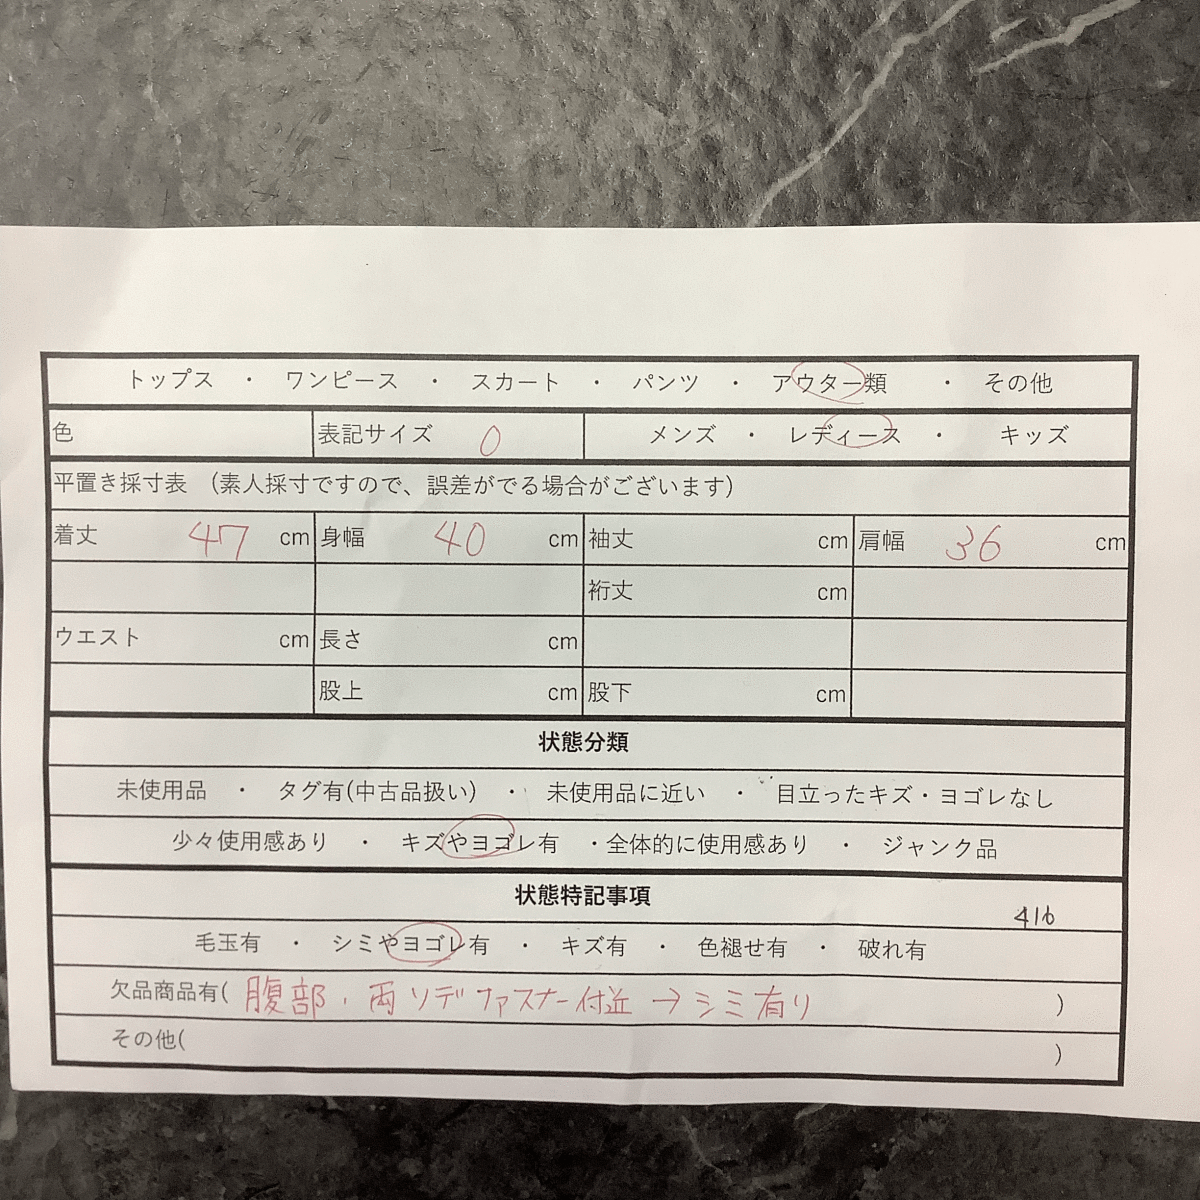 トップス ・ ワンピース ・ スカート ・ パンツ ・ アウター類 ・ その他
色 表記サイズ 0 メンズ ・ レディース ・ キッズ
平置き採寸表 (素人採寸ですので、誤差がでる場合がございます)
着丈 47 cm 身幅 40 cm 袖丈 cm 肩幅 36 cm
裄丈 cm
ウエスト cm 長さ cm
股上 cm 股下 cm
状態分類
未使用品 ・ タグ有(中古品扱い) ・ 未使用品に近い ・ 目立ったキズ・ヨゴレなし
少々使用感あり ・ キズやヨゴレ有 ・全体的に使用感あり ・ ジャンク品
状態特記事項
416
毛玉有 ・ シミやヨゴレ有 ・ キズ有 ・ 色褪せ有 ・ 破れ有
欠品商品有( 腹部、両ソデファスナー付近 → シミ有り )
その他( )